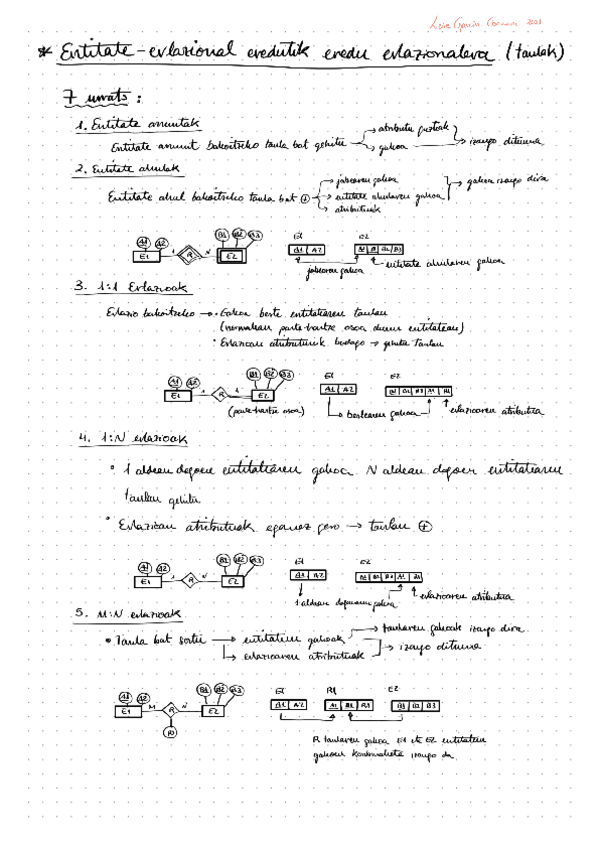 2021
* Entitate-erlazional eredutik eredu erlazionalera (taulak)
7 urrats :
1. Entitate arruntak
Entitate arrunt bakoitzeko taula bat gehitu → atributu guztiak → gakoa → izango dituena
2. Entitate ahulak
Entitate ahul bakoitzeko taula bat ⊕ → jabearen gakoa → entitate ahularen gakoa → atributuak → gakoa izango dira
A1 A2 B1 B2 B3 E1 E2
E1 1 R N E2 A1 A2 A1 B1 B2 B3
jabearen gakoa entitate ahularen gakoa
3. 1:1 Erlazioak
Erlazio bakoitzeko → • Gakoa beste entitatearen taulan
(normalean parte-hartze osoa duen entitatean)
• Erlazioan atributurik badago → gehitu taulan
A1 A2 B1 B2 B3 E1 E2
E1 1 R 1 E2 A1 A2 B1 B2 B3 A1 R1
(parte-hartze osoa) bestearen gakoa erlazioaren atributua
4. 1:N erlazioak
• 1 aldean dagoen entitatearen gakoa N aldean dagoen entitatearen
taulan gehitu
• Erlazioan atributuak egonez gero → taulan ⊕
A1 A2 B1 B2 B3 E1 E2
E1 1 R N E2 A1 A2 B1 B2 B3 A1 R1
1 aldean dagoenaren gakoa erlazioaren atributua
5. M:N erlazioak
• Taula bat sortu → entitateen gakoak → taularen gakoak izango dira
→ erlazioaren atributuak → izango dituena
A1 A2 B1 B2 B3 E1 R1 E2
E1 M R N E2 A1 A2 A1 B1 R1 B1 B2 B3
R1
R taularen gakoa E1 eta E2 entitateen
gakoen konbinaketa izango da.